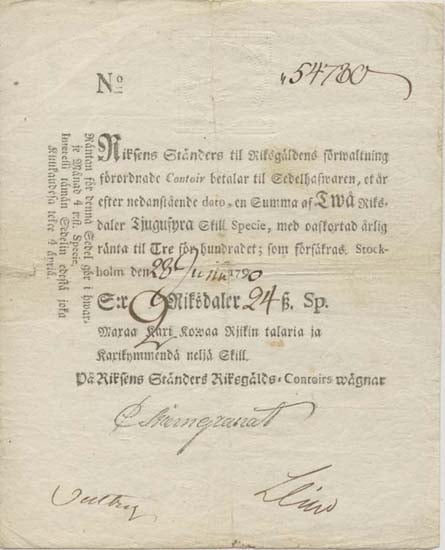 No 54780
Riksens Ständers til Riksgäldens förwaltning
förordnade Contoir betalar til Sedelhafwaren, et år
efter nedanstående dato, en Summa af Twå Riks-
daler Tjugufyra Skill. Specie, med oafkortad årlig
ränta til Tre för hundradet; som försäkras. Stock-
holm den 28 Junii 1790
S:r 2 Riksdaler 24 ß. Sp.
Maxaa Kaxi Kowaa Rjikin talaria ja
Kaxikymmendä neljä Skill.
På Riksens Ständers Riksgälds-Contoirs wägnar
Räntan för denna Sedel går i hwar-
je Månad 4 rest. Specie.
Interessi tämän Sedelin edestä joka
Kuukaudesa tekee 4 äyriä.